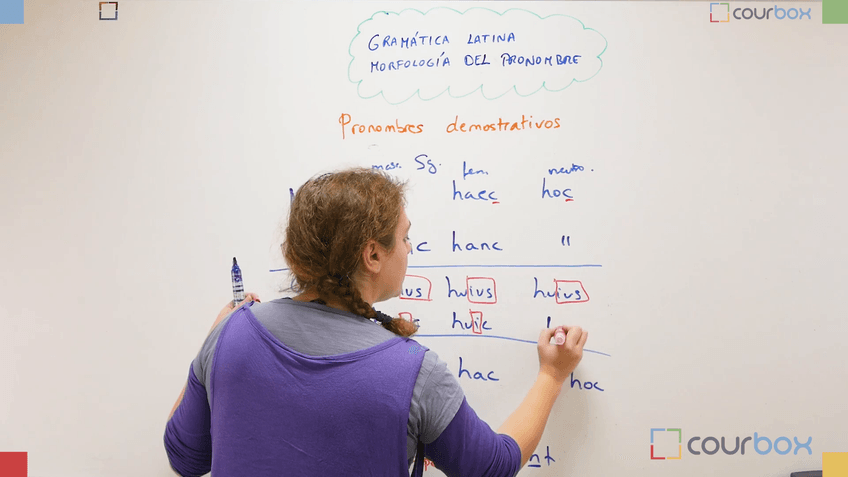 courbox
GRAMÁTICA LATINA
MORFOLOGÍA DEL PRONOMBRE
Pronombres demostrativos
masc. Sg. fem. neutro.
haec hoc
hanc "
huius huius
huic
hac hoc
courbox